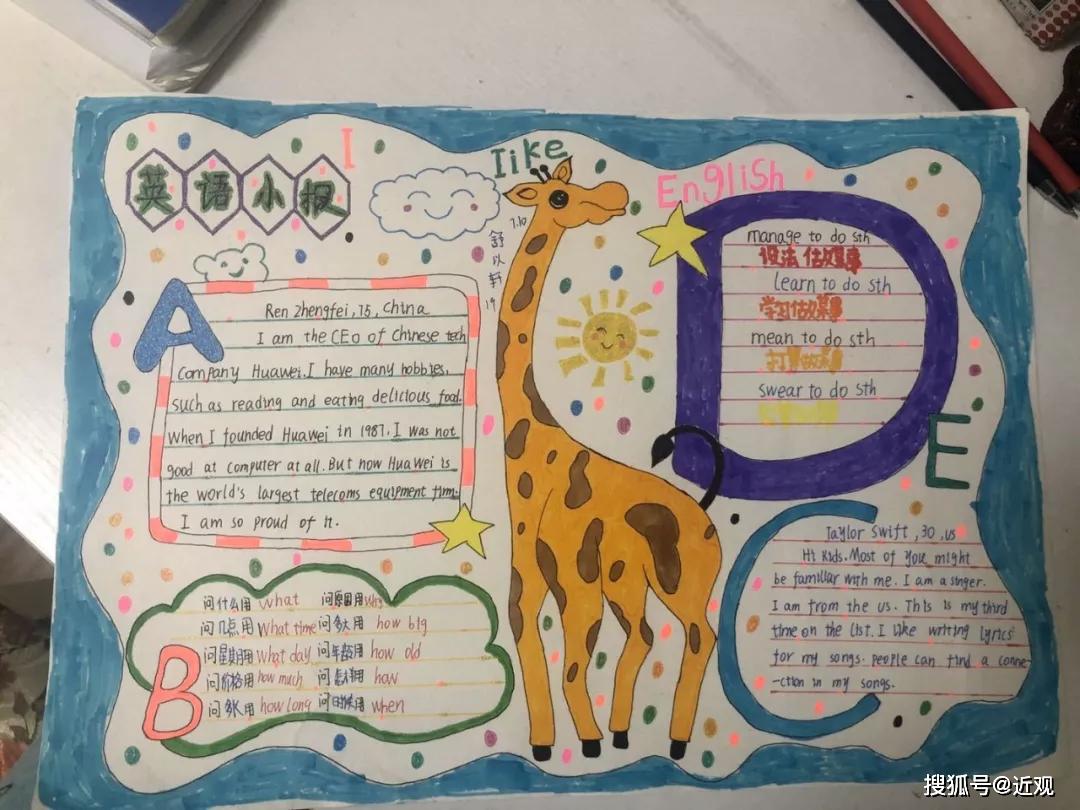 英语小报
I like English
舒以轩
7.10
19
A
Ren Zhengfei, 75, China
I am the CEO of Chinese tech
Company Huawei. I have many hobbies,
such as reading and eating delicious food.
When I founded Huawei in 1987. I was not
good at computer at all. But now Huawei is
the world's largest telecoms equipment firm.
I am so proud of it.
B
问什么用 what 问原因用 why
问几点用 what time 问多大用 how big
问星期用 what day 问年龄用 how old
问价格用 how much 问 用 how
问多长用 how long 问 用 when
D
manage to do sth
设法做某事
learn to do sth
学习做某事
mean to do sth
打算做某事
swear to do sth
E
C
Taylor Swift, 30, US
Hi Kids. Most of you might
be familiar with me. I am a singer.
I am from the US. This is my third
time on the list. I like writing lyrics
for my songs. people can find a conne-
-ction in my songs.
搜狐号@近观